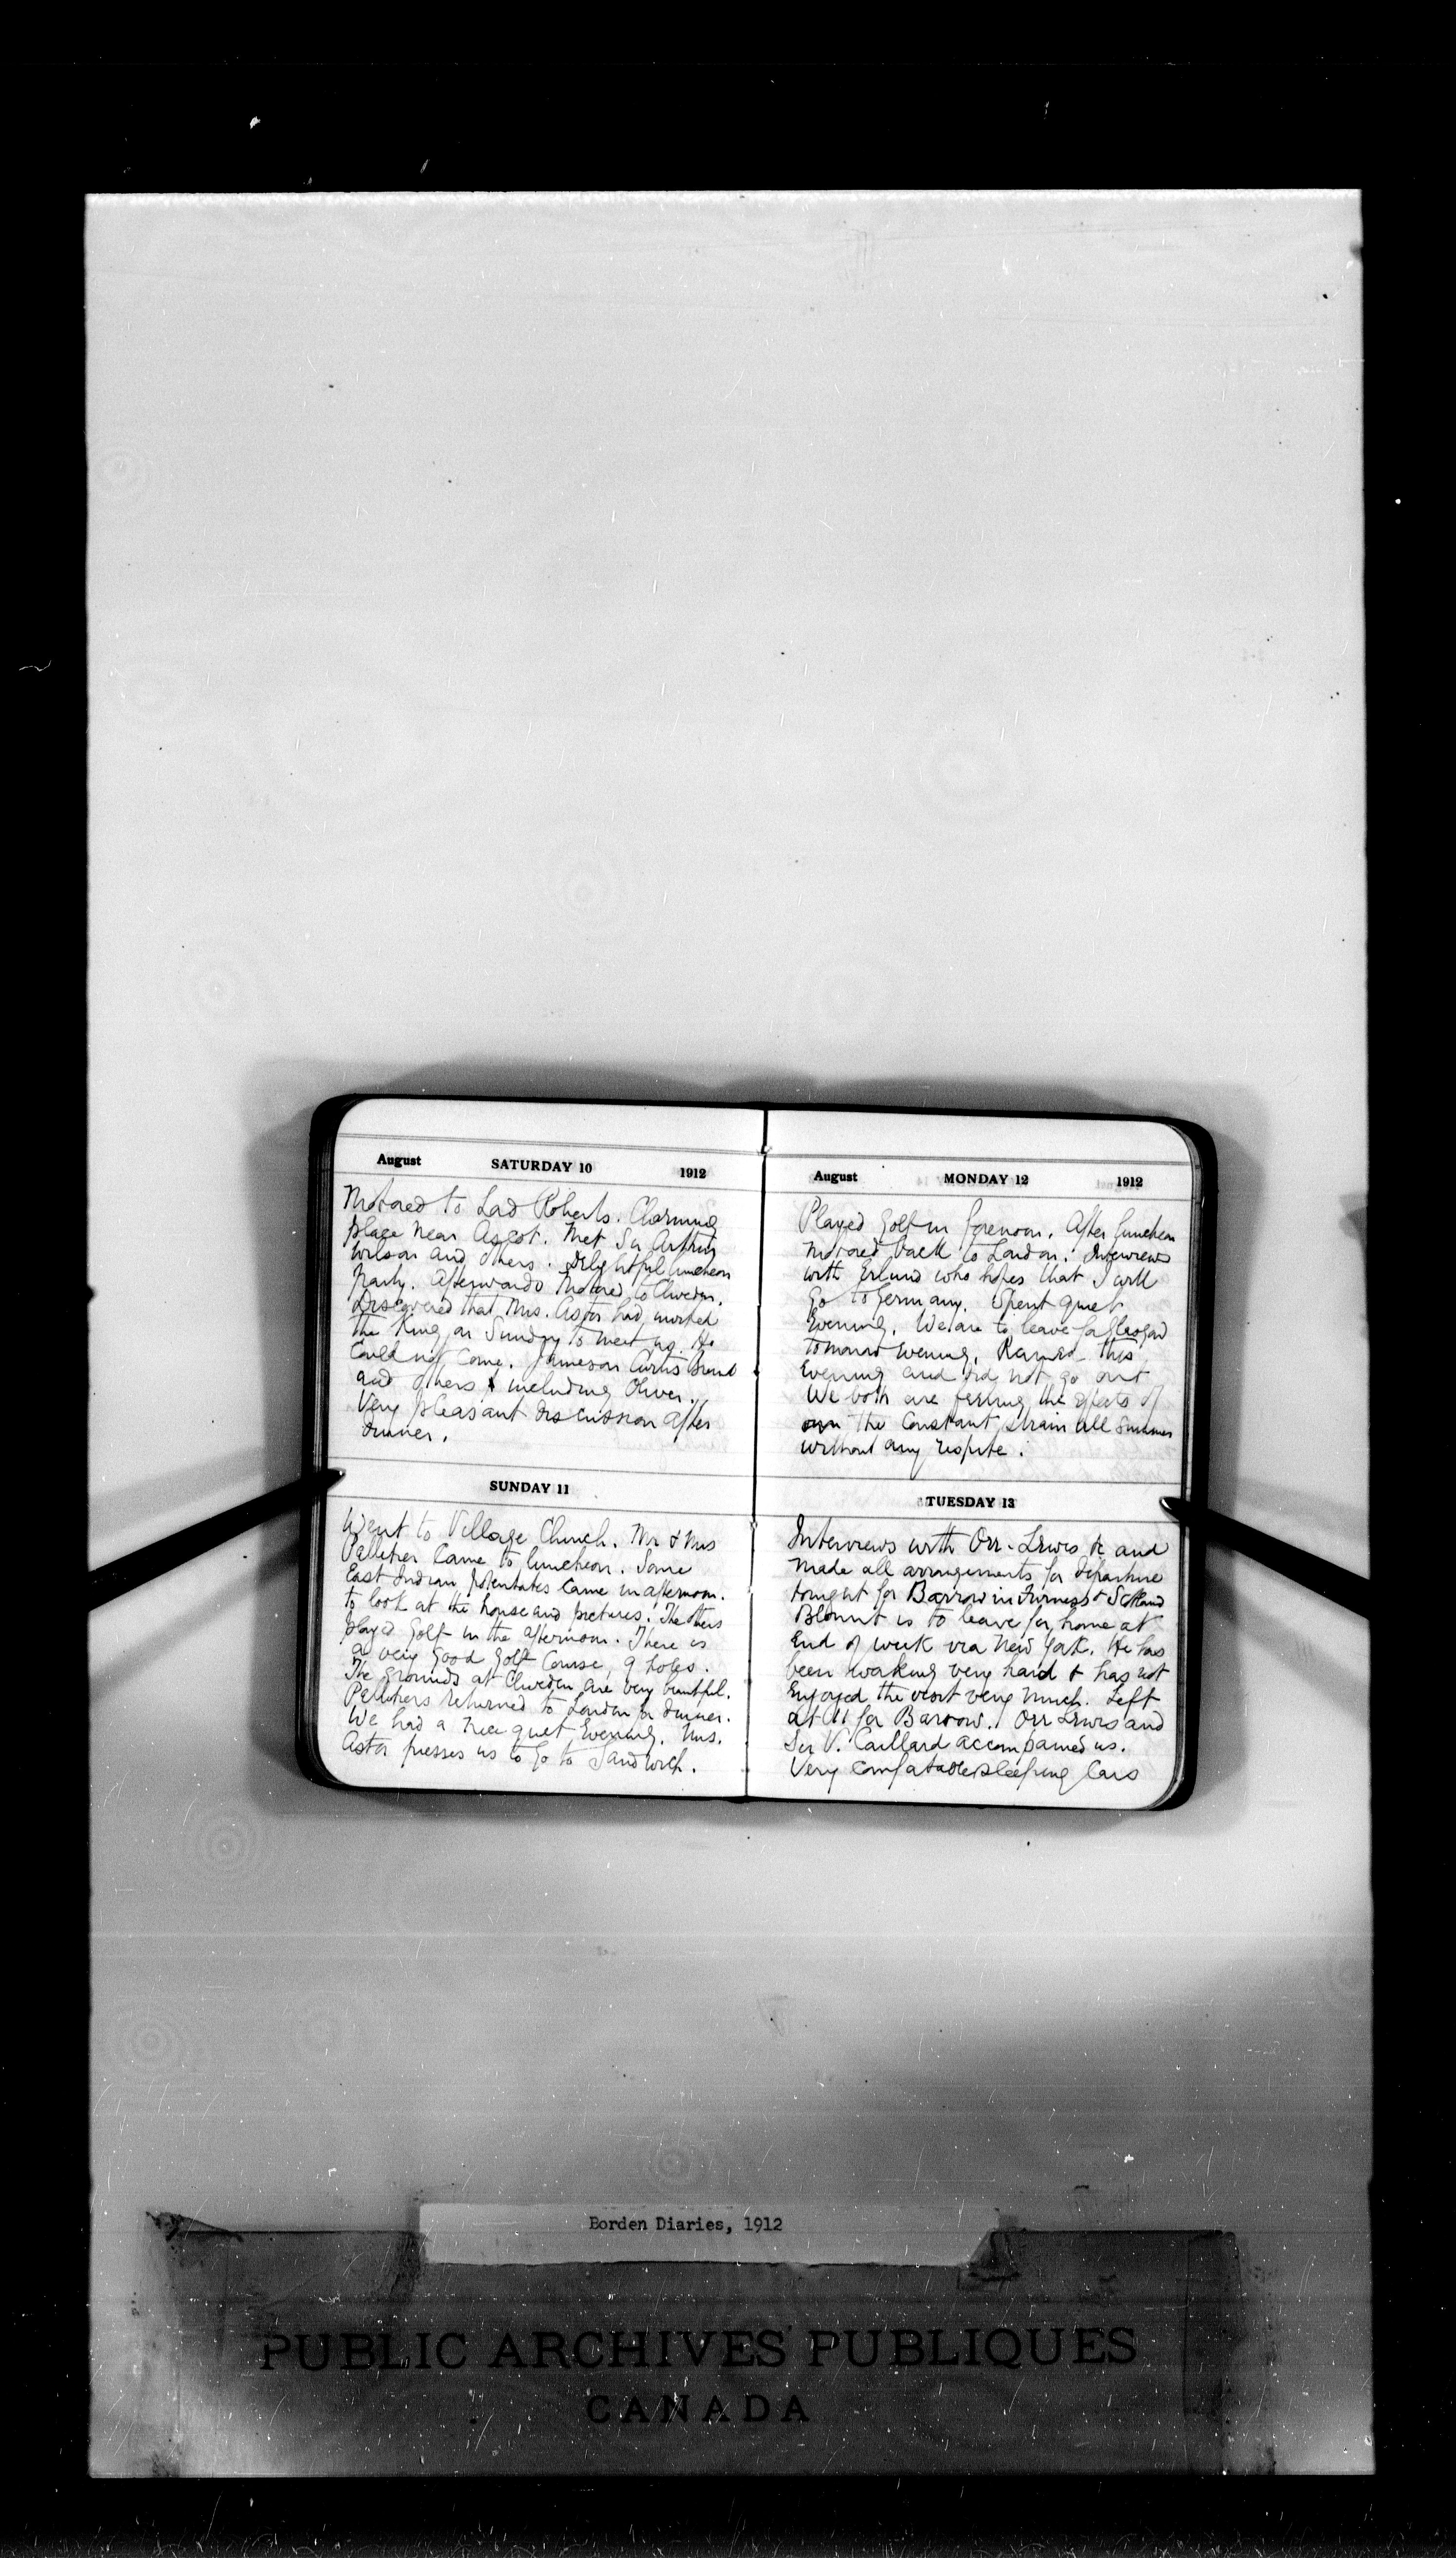 August SATURDAY 10 1912
Motored to Lord Roberts. Charming
place near Ascot. Met Sir Arthur
Wilson and others. Delightful luncheon
party. Afterwards motored to Cliveden.
Discovered that Mrs. Astor had invited
the King on Sunday to meet us. He
could not come. Jameson Curtis Brand
and others & including Oliver.
Very pleasant discussion after
dinner.
SUNDAY 11
Went to Village Church. Mr & Mrs
Pelletier came to luncheon. Some
East Indian potentates came in afternoon.
to look at the house and pictures. The others
played Golf in the afternoon. There is
a very good Golf Course, 9 holes.
The grounds at Cliveden are very beautiful.
Pelletiers returned to London for dinner.
We had a nice quiet evening. Mrs.
Astor presses us to go to Sandwich.
August MONDAY 12 1912
Played Golf in forenoon. After luncheon
motored back to London. Interview
with who hopes that I will
go to Germany. Spent quiet
evening. We are to leave for Glasgow
tomorrow evening. Rained this
evening and did not go out
We both are feeling the effects of
the constant strain all summer
without any respite.
TUESDAY 13
Interviews with Orr-Lewis &c and
made all arrangements for departure
tonight for Barrow in Furness & Scotland
Blount is to leave for home at
end of week via New York. He has
been working very hard & has not
enjoyed the visit very much. Left
at 11 for Barrow. Orr Lewis and
Sir V. Caillard accompanied us.
Very comfortable sleeping cars
Borden Diaries, 1912
PUBLIC ARCHIVES PUBLIQUES
CANADA